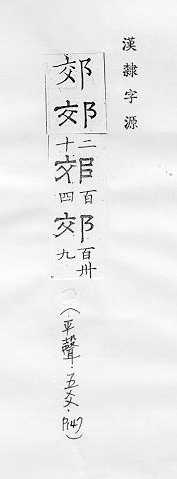 漢隸字源
郊郊二十郊百四郊百卅九（平聲·五爻·P147）